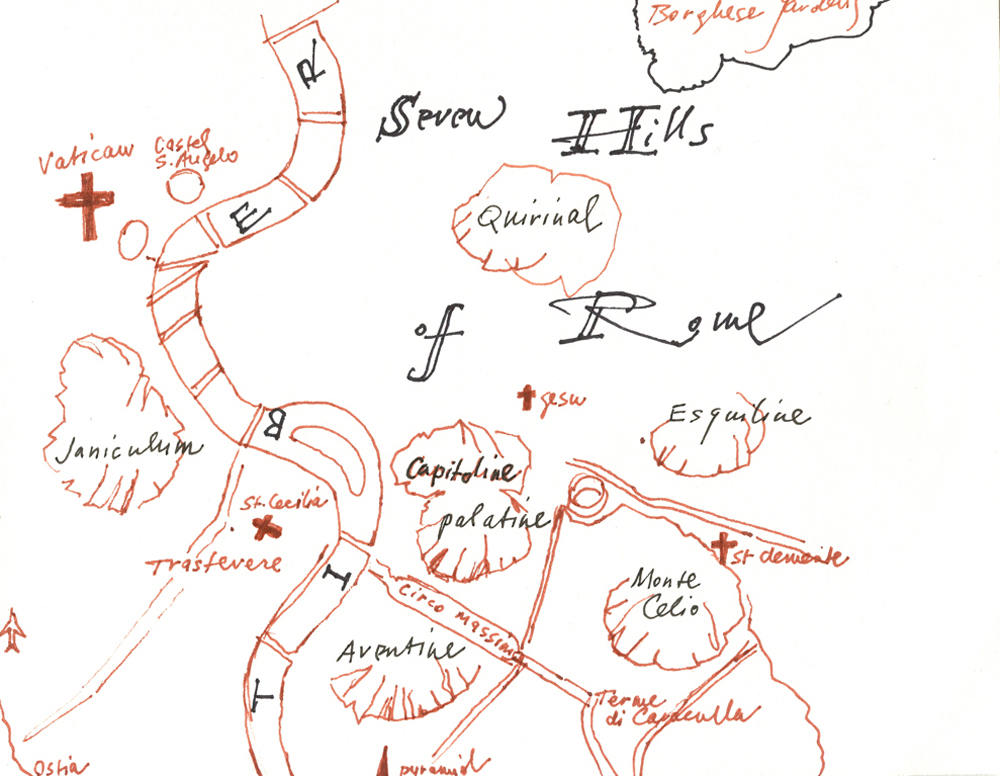 Borghese Gardens
R
Seven Hills
Vatican
Castel
S. Angelo
E
Quirinal
of Rome
gesu
B
Esquiline
Janiculum
Capitoline
St. Cecilia
palatine
Trastevere
st clemente
I
Monte
Celio
Circo Massimo
Aventine
T
Terme
di Caraculla
Ostia
pyramid